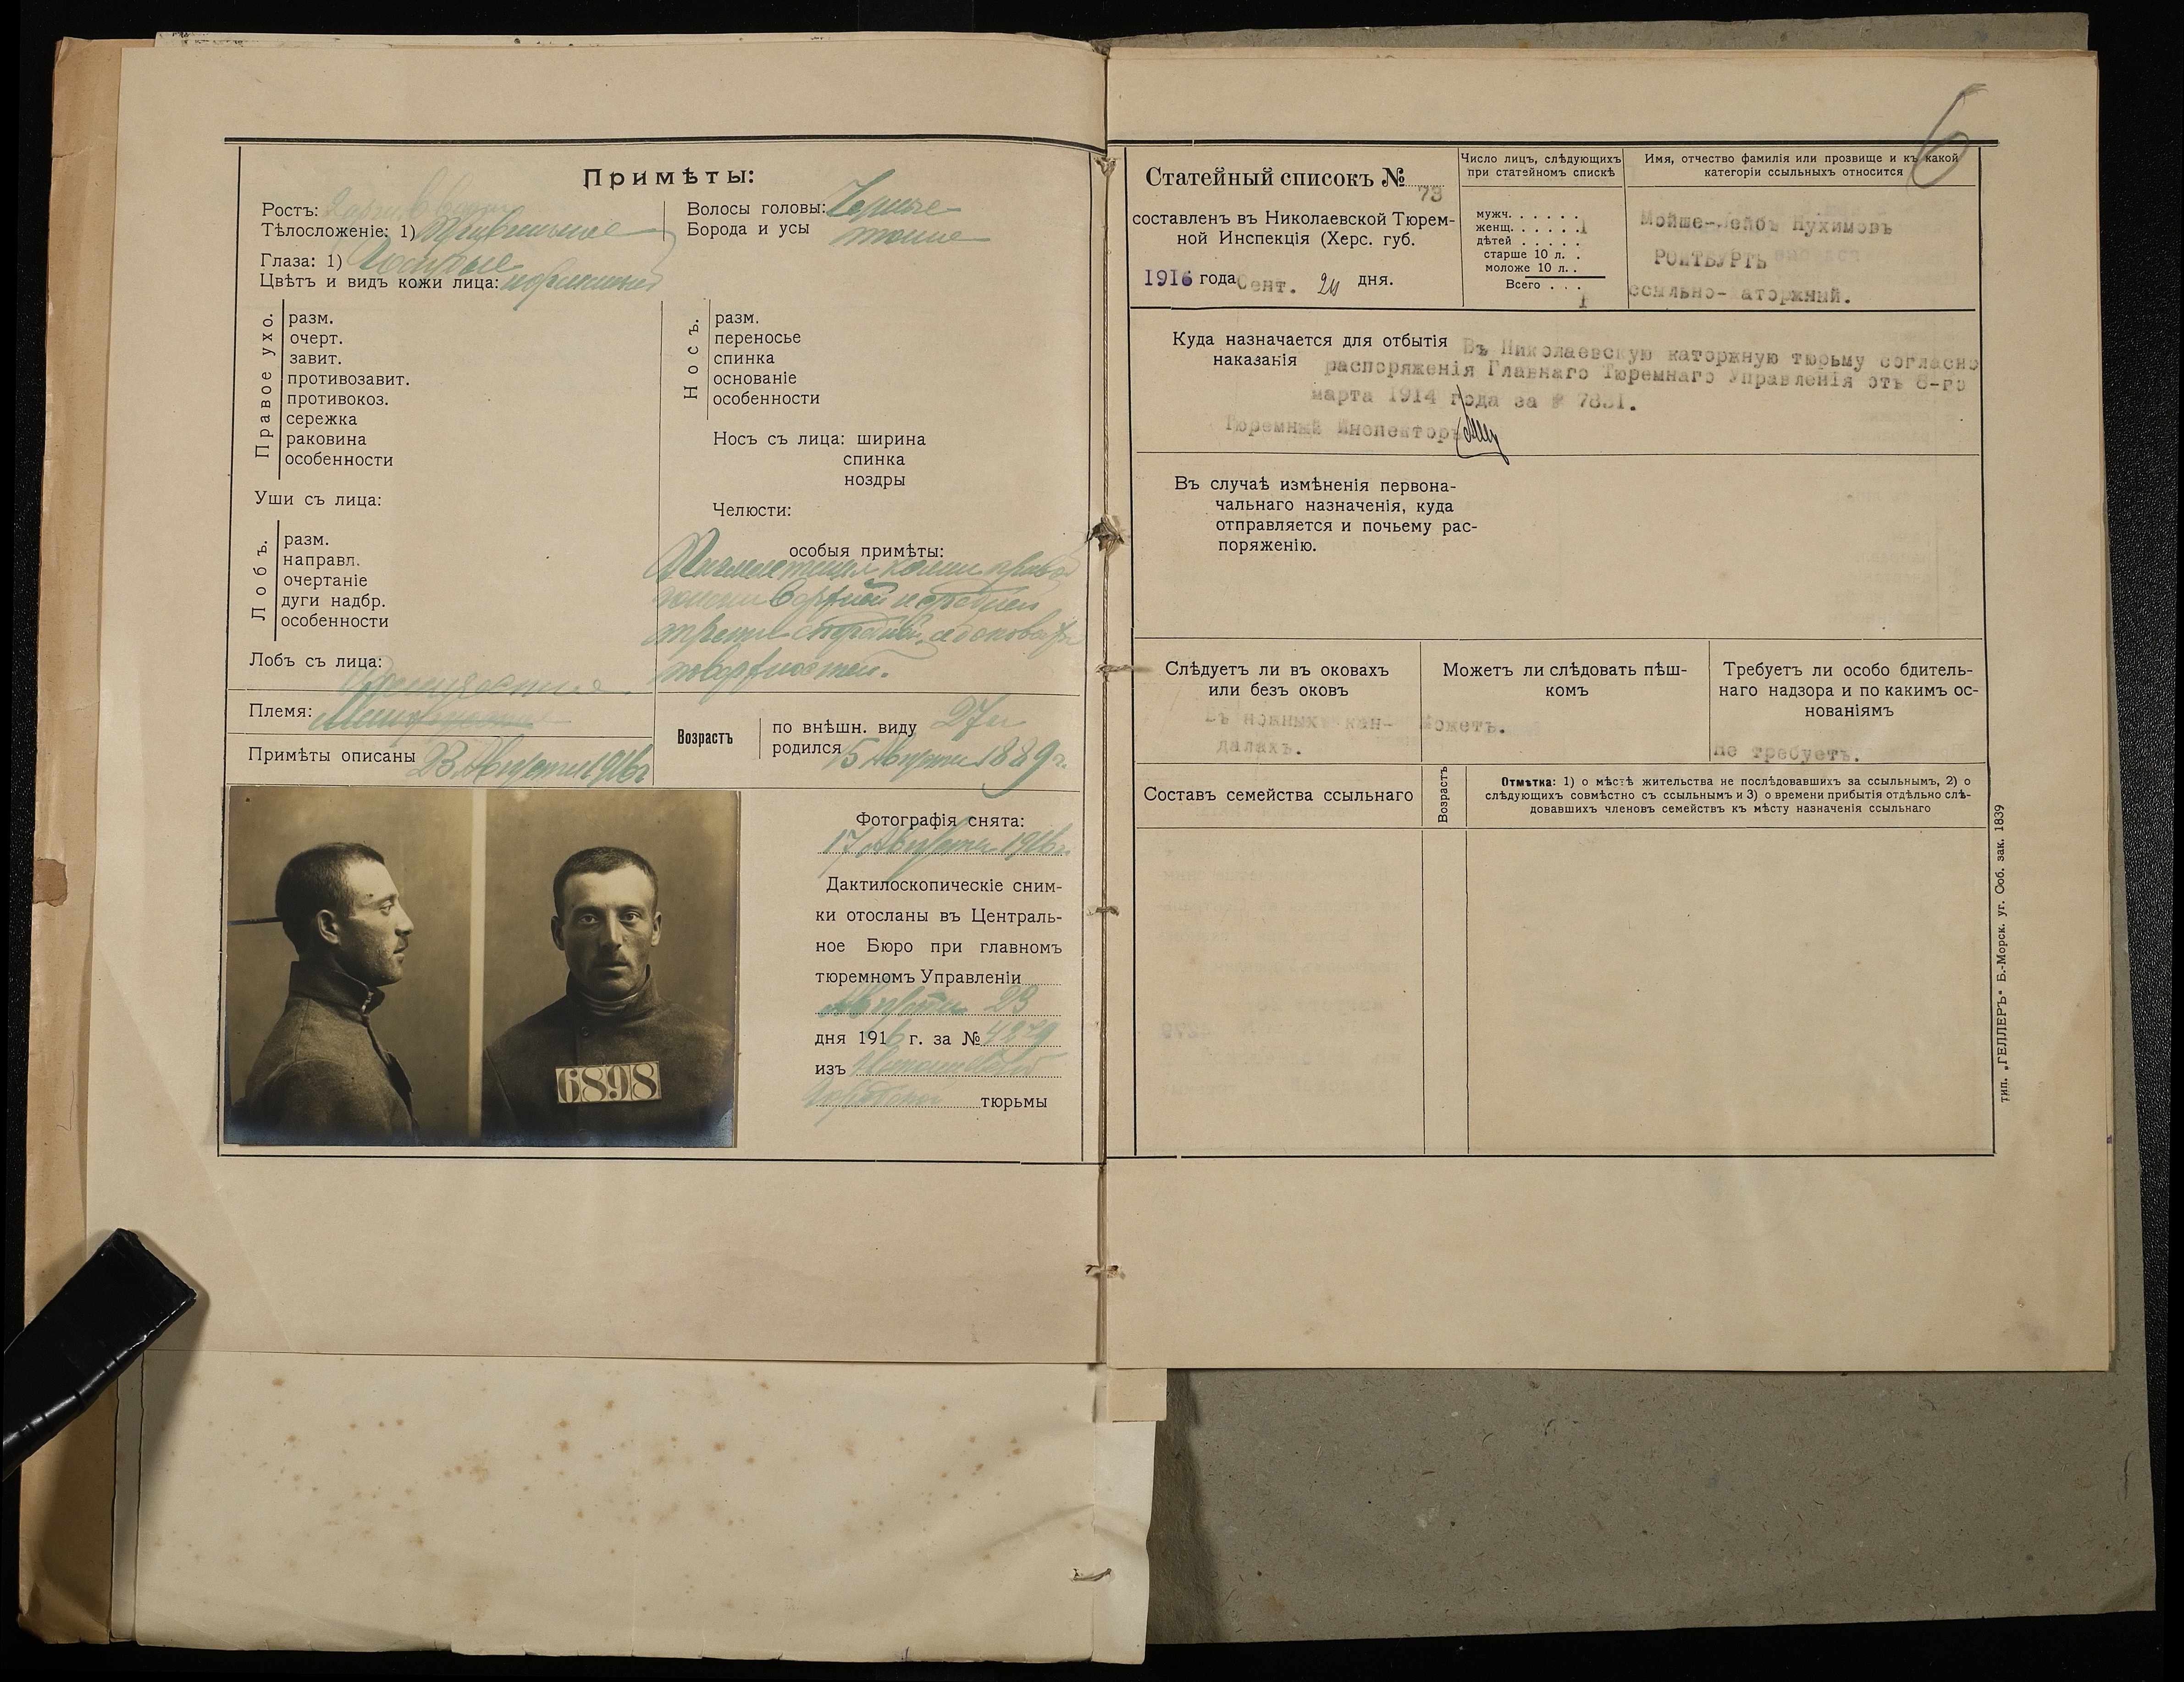 Примѣты:
Ростъ: 2 арш. 6 верш.
Тѣлосложеніе: 1) Правильное
Глаза: 1)
Цвѣтъ и видъ кожи лица: нормальный
Волосы головы: Черные
Борода и усы тоже
Правое ухо.
разм.
очерт.
завит.
противозавит.
противокоз.
сережка
раковина
особенности
Уши съ лица:
Лобъ.
разм.
направл.
очертаніе
дуги надбр.
особенности
Лобъ съ лица:
Носъ.
разм.
переносье
спинка
основаніе
особенности
Носъ съ лица: ширина
спинка
ноздри
Челюсти:
особыя примѣты:
кожи правой
и средней
поверхностей.
Племя:
Примѣты описаны 23 Августа 1916 г
Возрастъ
по внѣшн. виду 27 л
родился 5 Августа 1889 г.
6898
Фотографія снята:
17 Августа 1916 г.
Дактилоскопическіе сним-
ки отосланы въ Централь-
ное Бюро при главномъ
тюремномъ Управленіи
Августа 23
дня 1916 г. за № 4979
изъ
тюрьмы
6
Статейный списокъ № 73
составленъ въ Николаевской Тюрем-
ной Инспекція (Херс. губ.
1916 года Сент. 24 дня.
Число лицъ, слѣдующихъ
при статейномъ спискѣ
мужч. . . . . . 1
женщ. . . . . .
дѣтей . . . . .
старше 10 л. .
моложе 10 л. .
Всего . . . 1
Имя, отчество фамилія или прозвище и къ какой
категоріи ссыльныхъ относится
Мойше-Лейбъ Нухимовъ
РОИТБУРТЬ
ссыльно-каторжный.
Куда назначается для отбытія
наказанія
Въ Николаевскую каторжную тюрьму согласно
распоряженія Главнаго Тюремнаго Управленія отъ 8-го
марта 1914 года за № 7831.
Тюремный Инспекторъ
Въ случаѣ измѣненія первона-
чальнаго назначенія, куда
отправляется и почьему рас-
поряженію.
Слѣдуетъ ли въ оковахъ
или безъ оковъ
Въ ножныхъ кан-
далахъ.
Можетъ ли слѣдовать пѣш-
комъ
Может.
Требуетъ ли особо бдитель-
наго надзора и по какимъ ос-
нованіямъ
Не требуетъ.
Составъ семейства ссыльнаго
Возрастъ
Отмѣтка: 1) о мѣстѣ жительства не послѣдовавшихъ за ссыльнымъ, 2) о
слѣдующихъ совмѣстно съ ссыльнымъ и 3) о времени прибытія отдѣльно слѣ-
довавшихъ членовъ семействъ къ мѣсту назначенія ссыльнаго
тип. „ГЕЛЛЕРЪ“ Б.-Морск. уг. Соб. зак. 1839